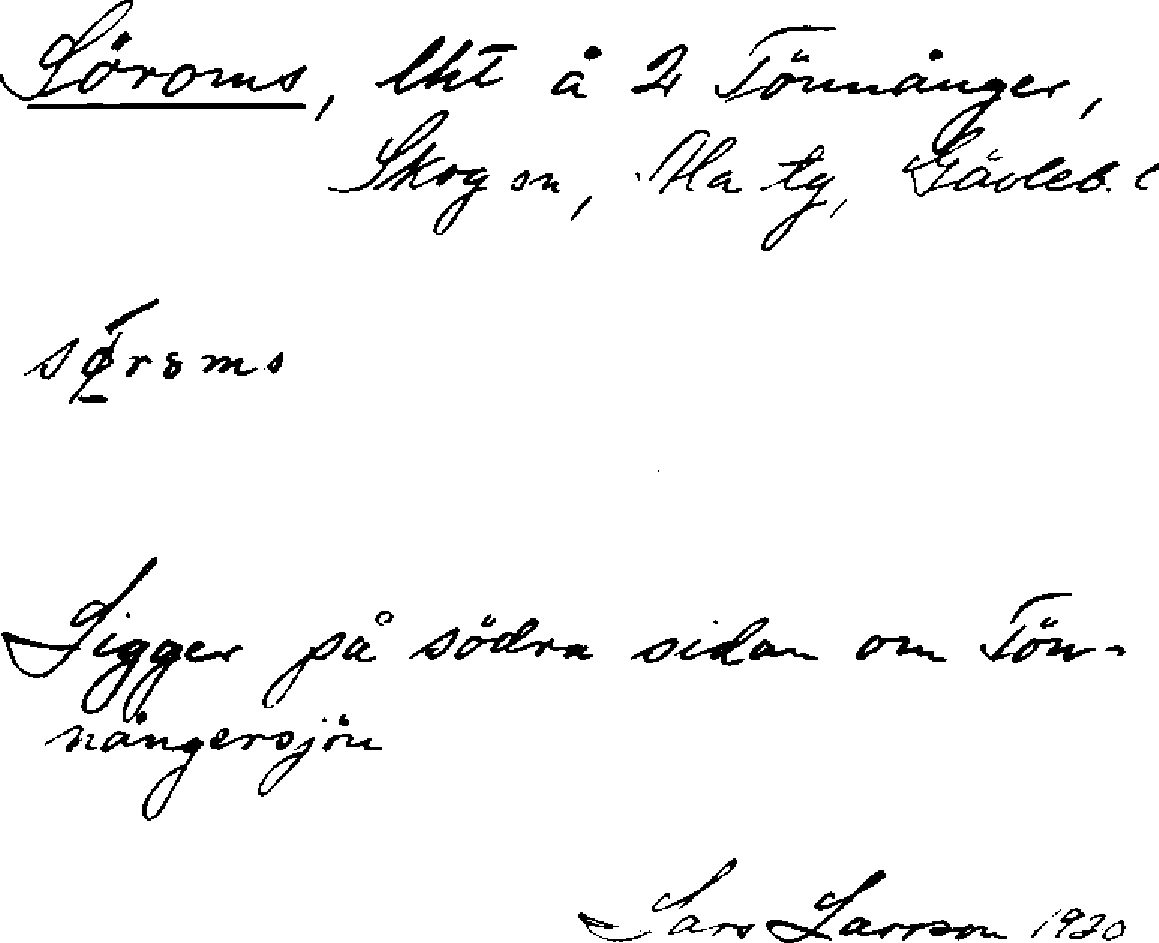 Söroms, lht å 2 Tönnånger,
Skog sn, Ha tg, Gävleb. l
söroms
Ligger på södra sidan om Tön-
nångersjön
Lars Larsson 1920